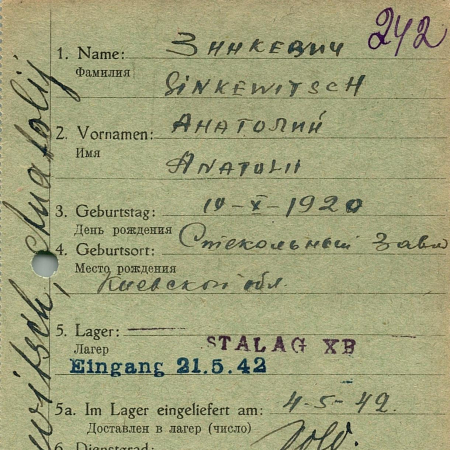 242
1. Name: Зинкевич
Фамилия
SINKEWITSCH
2. Vornamen: Анатолий
Имя
ANATOLII
3. Geburtstag: 10-X-1920
День рождения
4. Geburtsort: Стекольный Заво
Место рождения
Киевской обл.
5. Lager:
Лагер
STALAG XB
Eingang 21.5.42
5a. Im Lager eingeliefert am: 4-5-42.
Доставлен в лагер (число)
6. Dienstgrad: Sold.
witsch, Anatolij